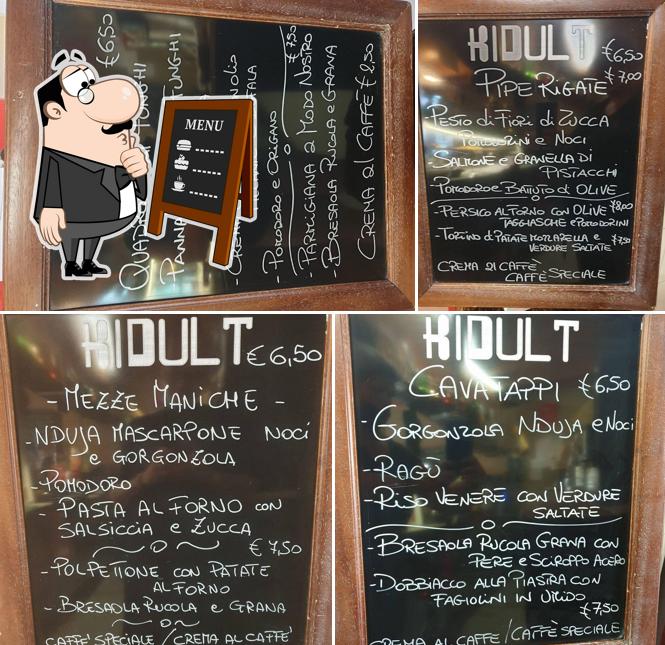 €6,50
QUA
FUNGHI
PANNA
FUNGHI
MENU
- CRE
- POMODORO E ORIGANO
€7,50
- PARMIGIANA A MODO NOSTRO
- BRESAOLA RUCOLA E GRANA
CREMA AL CAFFÈ €2,50
KIDULT €6,50
PIPE RIGATE €7,00
PESTO di FIORI di ZUCCA
POMODORINI E NOCI
- SALMONE E GRANELLA DI
PISTACCHI
- POMODORO E BATTUTO di OLIVE
- PERSICO AL FORNO CON OLIVE €8,00
TAGGIASCHE E POMODORINI
- TORTINO di PATATE MOZZARELLA E €7,50
VERDURE SALTATE
CREMA AL CAFFÈ
CAFFÈ SPECIALE
KIDULT €6,50
- MEZZE MANICHE -
- NDUJA MASCARPONE NOCI
e GORGONZOLA
- POMODORO
- PASTA AL FORNO CON
SALSICCIA e ZUCCA
€7,50
- POLPETTONE CON PATATE
AL FORNO
- BRESAOLA RUCOLA e GRANA
CAFFE' SPECIALE / CREMA AL CAFFE'
KIDULT
CAVATAPPI €6,50
- GORGONZOLA NDUJA e NOCI
- RAGÙ
- RISO VENERE CON VERDURE
SALTATE
- BRESAOLA RUCOLA GRANA CON
PERE E SCIROPPO ACERO
- DOBBIACCO ALLA PIASTRA CON
FAGIOLINI IN UMIDO
€7,50
CREMA AL CAFFE / CAFFÈ SPECIALE